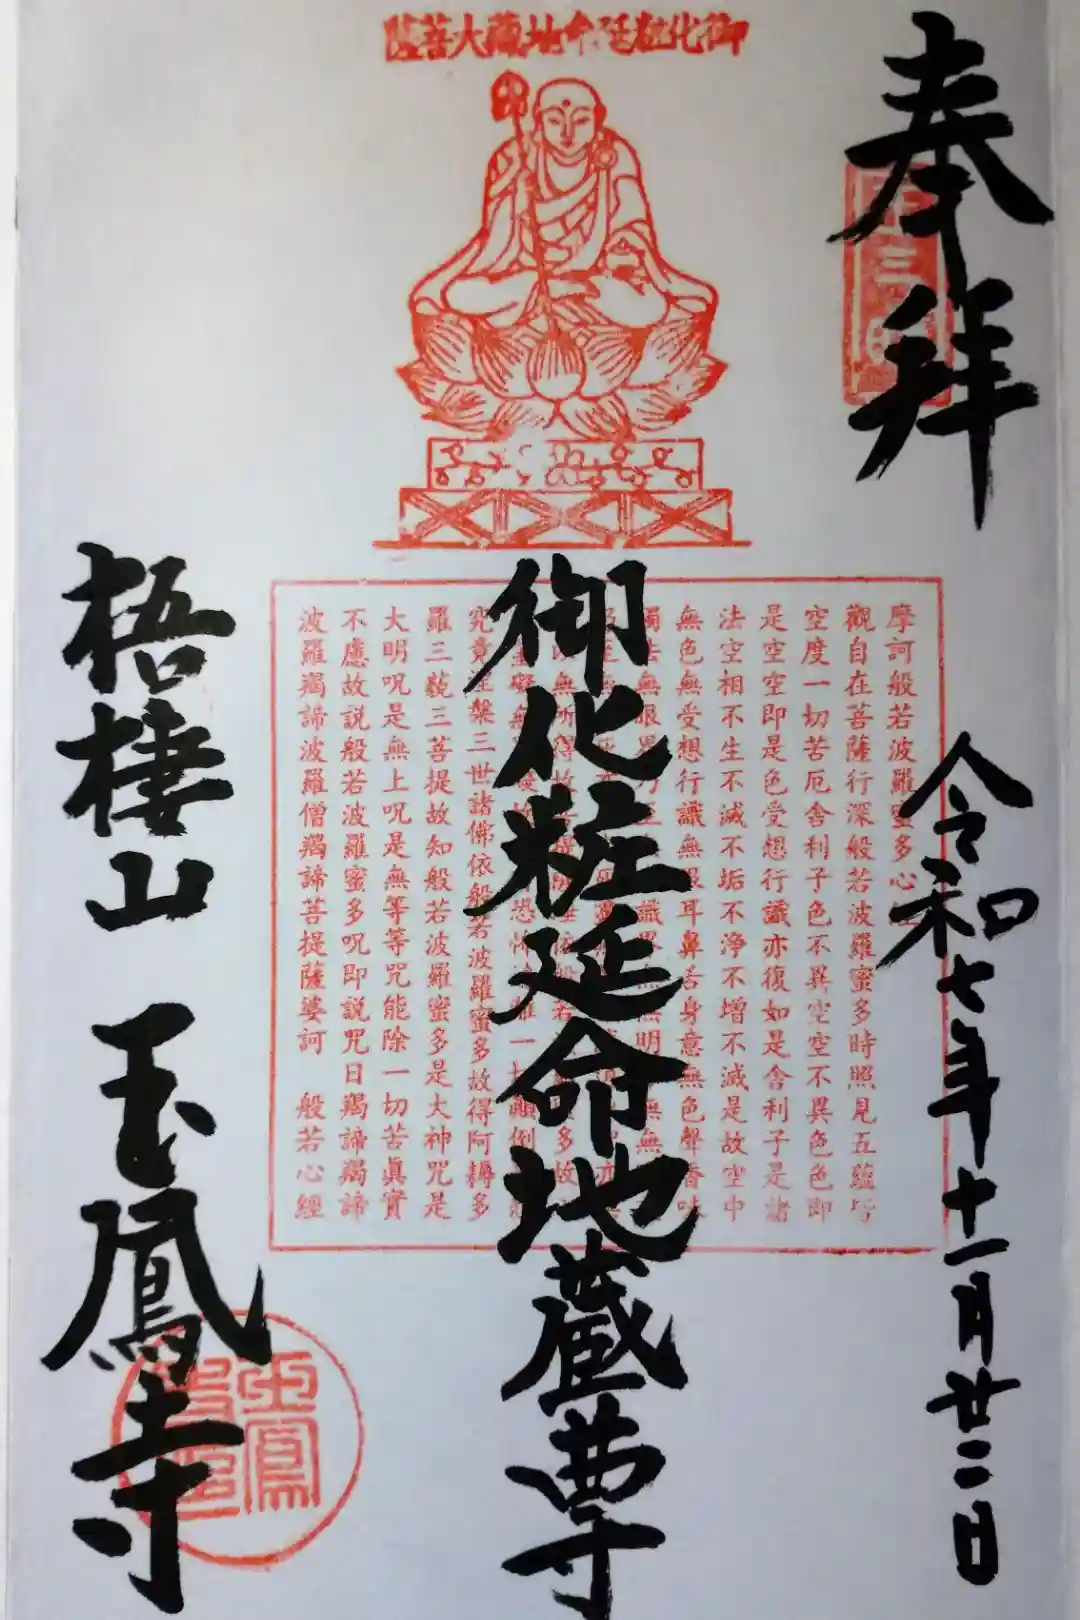 奉拝
令和七年十一月廿二日
御化粧延命地蔵大菩薩
御化粧延命地蔵尊
摩訶般若波羅蜜多心
觀自在菩薩行深般若波羅蜜多時照見五蘊皆
空度一切苦厄舍利子色不異空空不異色色即
是空空即是色受想行識亦復如是舍利子是諸
法空相不生不滅不垢不浄不増不減是故空中
無色無受想行識無眼耳鼻舌身意無色聲香味
無眼界乃至 識界無 明 無無
究竟涅槃三世諸佛依般若波羅蜜多故得阿耨多
羅三藐三菩提故知般若波羅蜜多是大神咒是
大明呪是無上呪是無等等咒能除一切苦眞實
不虚故説般若波羅蜜多呪即説咒曰羯諦羯諦
波羅羯諦波羅僧羯諦菩提薩婆訶 般若心經
梧棲山 玉鳳寺